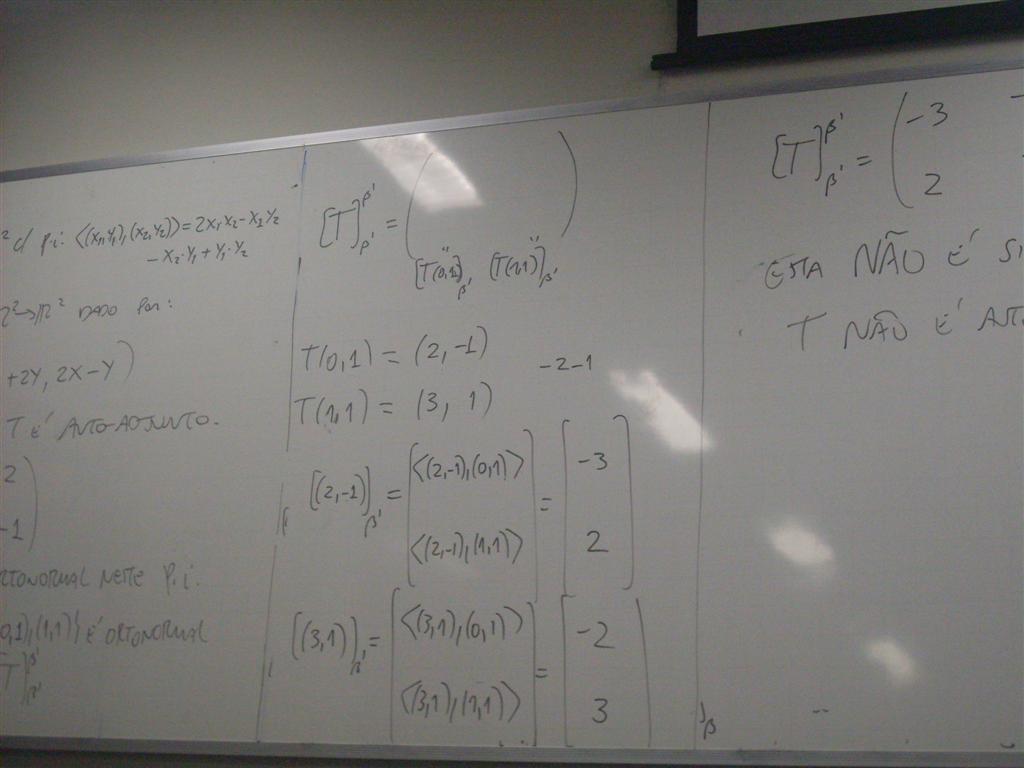 ² c/ p.i: ⟨(x₁,y₁),(x₂,y₂)⟩ = 2x₁x₂ - x₁y₂
- x₂·y₁ + y₁·y₂
ℝ²→ℝ² DADO POR:
+2Y, 2X-Y)
T É AUTO-ADJUNTO.
2
-1
RTONORMAL NESTE p.i.
0,1),(1,1)} É ORTONORMAL
T]β'β'
[T]β'β' = ( )
[T(0,1)]β' [T(1,1)]β'
T(0,1) = (2,-1)
-2-1
T(1,1) = (3, 1)
[(2,-1)]β' = [⟨(2,-1),(0,1)⟩ = [-3
⟨(2,-1),(1,1)⟩] 2]
[(3,1)]β' = [⟨(3,1),(0,1)⟩ = [-2
⟨(3,1),(1,1)⟩] 3]
[T]β'β' = (-3
2
ESTA NÃO É SI
T NÃO É AUTO
]β